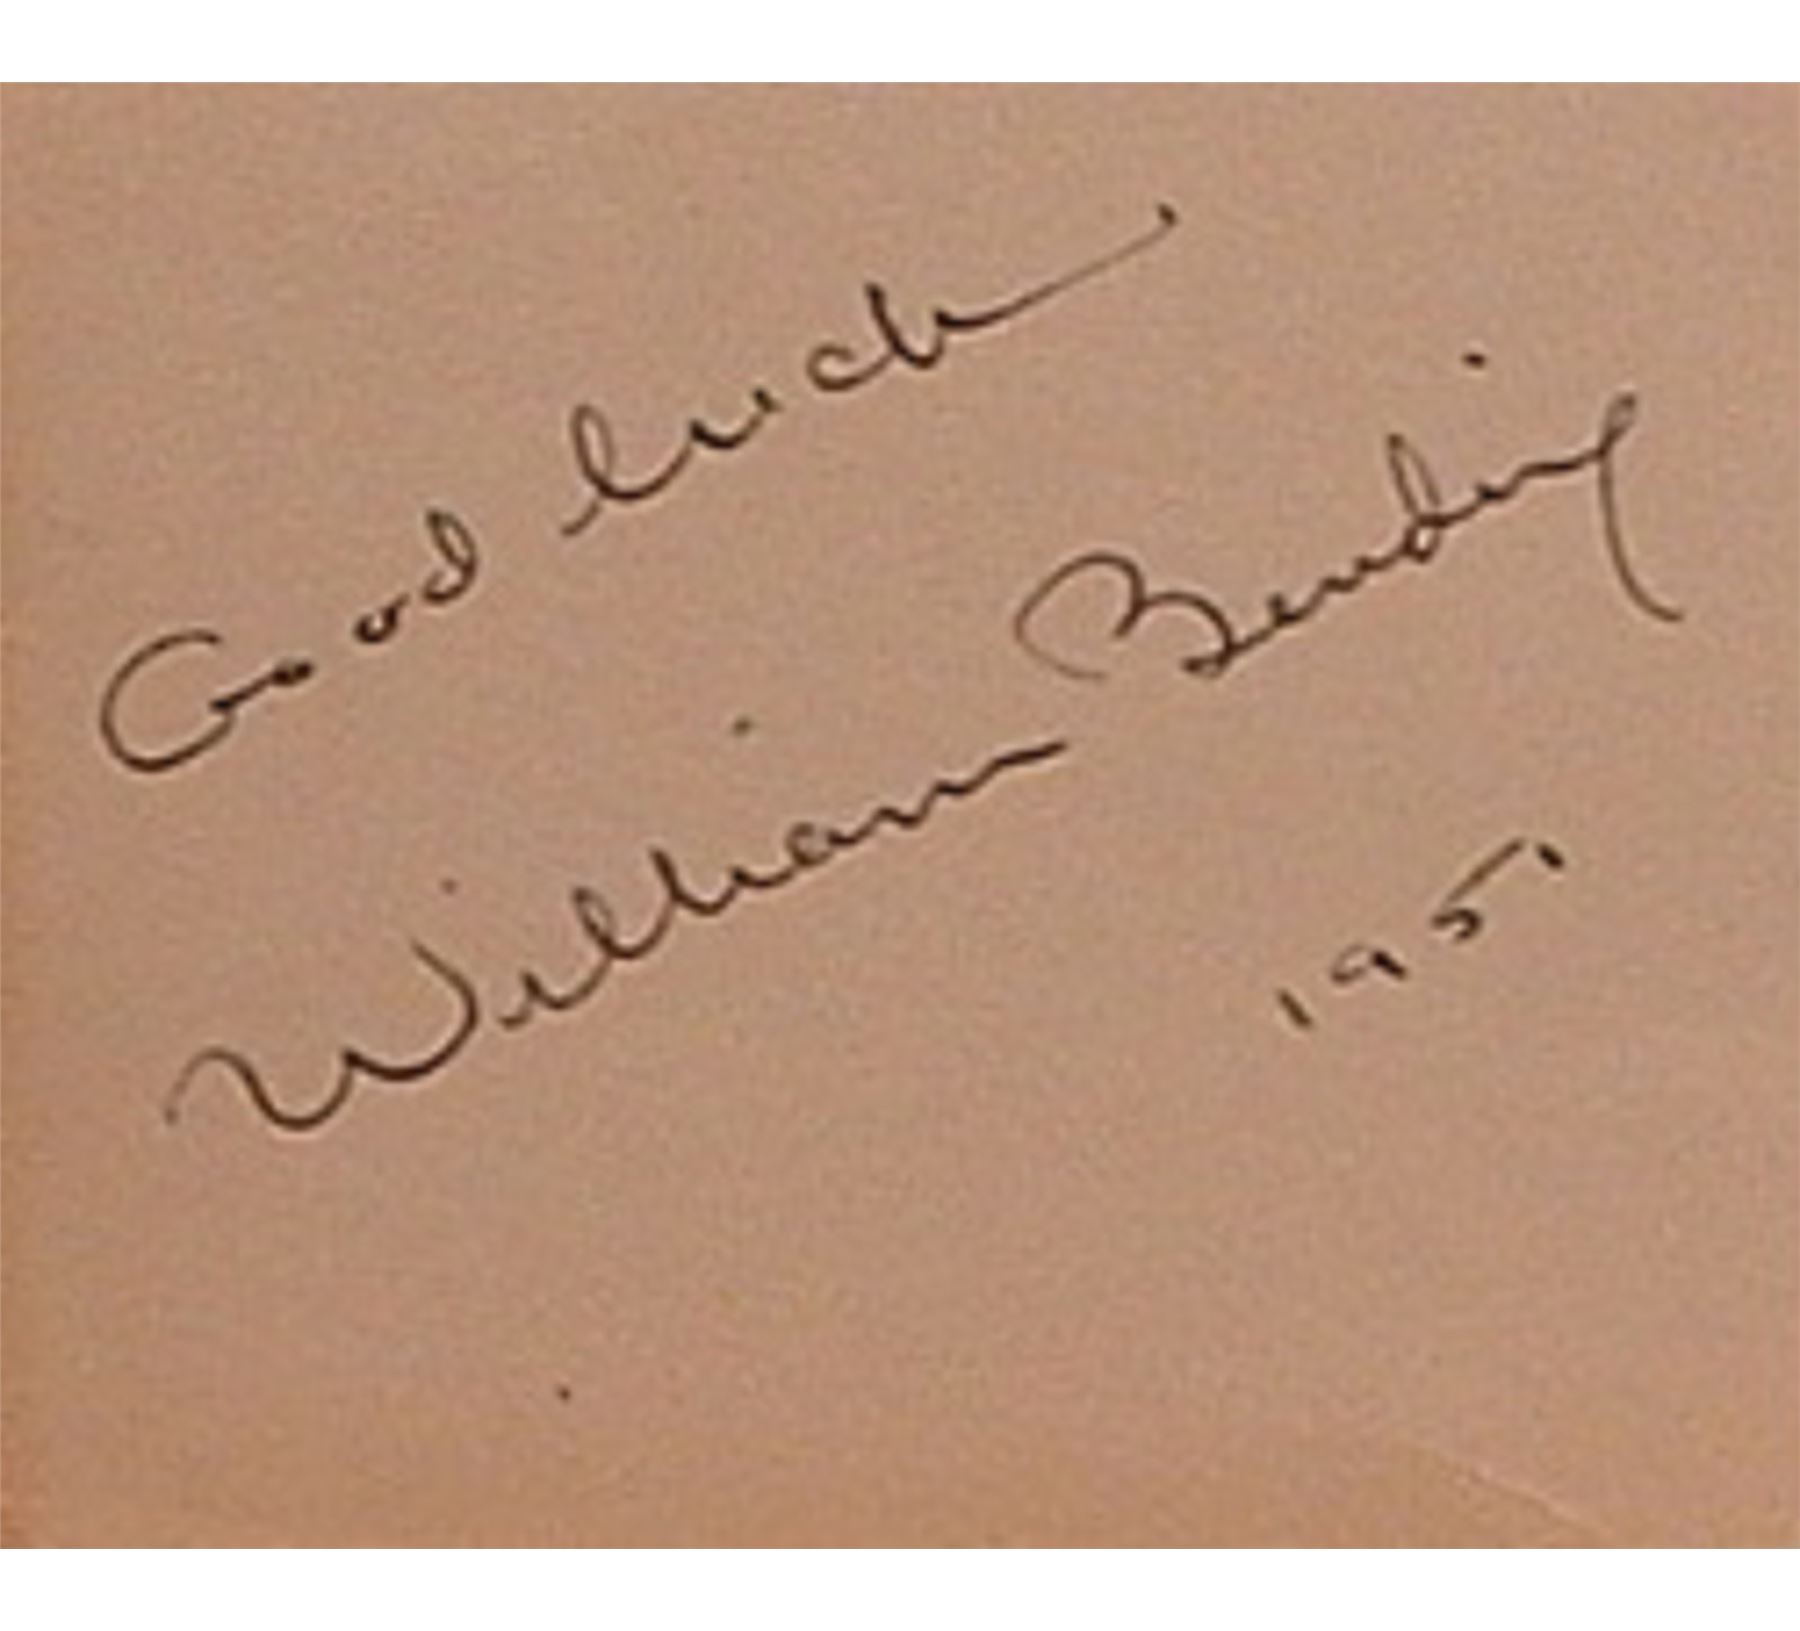 Good luck
William Bendix
1951